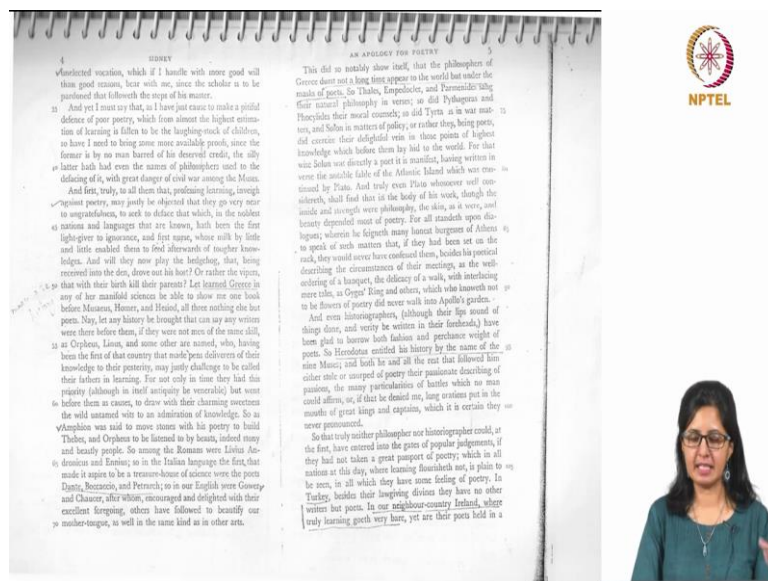 4 SIDNEY
unelected vocation, which if I handle with more good will
than good reasons, bear with me, since the scholar is to be
pardoned that followeth the steps of his master.
And yet I must say that, as I have just cause to make a pitiful
defence of poor poetry, which from almost the highest estima-
tion of learning is fallen to be the laughing-stock of children,
so have I need to bring some more available proofs, since the
former is by no man barred of his deserved credit, the silly
latter hath had even the names of philosophers used to the
defacing of it, with great danger of civil war among the Muses.
And first, truly, to all them that, professing learning, inveigh
against poetry, may justly be objected that they go very near
to ungratefulness, to seek to deface that which, in the noblest
nations and languages that are known, hath been the first
light-giver to ignorance, and first nurse, whose milk by little
and little enabled them to feed afterwards of tougher know-
ledges. And will they now play the hedgehog, that, being
received into the den, drove out his host? Or rather the vipers,
that with their birth kill their parents? Let learned Greece in
any of her manifold sciences be able to show me one book
before Musaeus, Homer, and Hesiod, all three nothing else but
poets. Nay, let any history be brought that can say any writers
were there before them, if they were not men of the same skill,
as Orpheus, Linus, and some other are named, who, having
been the first of that country that made pens deliverers of their
knowledge to their posterity, may justly challenge to be called
their fathers in learning. For not only in time they had this
priority (although in itself antiquity be venerable) but went
before them as causes, to draw with their charming sweetness
the wild untamed wits to an admiration of knowledge. So as
Amphion was said to move stones with his poetry to build
Thebes, and Orpheus to be listened to by beasts, indeed stony
and beastly people. So among the Romans were Livius An-
dronicus and Ennius; so in the Italian language the first, that
made it aspire to be a treasure-house of science were the poets
Dante, Boccaccio, and Petrarch; so in our English were Gower
and Chaucer, after whom, encouraged and delighted with their
excellent foregoing, others have followed to beautify our
70 mother-tongue, as well in the same kind as in other arts.
AN APOLOGY FOR POETRY 5
This did so notably show itself, that the philosophers of
Greece durst not a long time appear to the world but under the
masks of poets. So Thales, Empedocles, and Parmenides sang
their natural philosophy in verses; so did Pythagoras and
Phocylides their moral counsels; so did Tyrtaeus in war mat-
ters, and Solon in matters of policy; or rather they, being poets,
did exercise their delightful vein in those points of highest
knowledge which before them lay hid to the world. For that
wise Solon was directly a poet it is manifest, having written in
verse the notable fable of the Atlantic Island which was con-
tinued by Plato. And truly even Plato whosoever well con-
sidereth, shall find that in the body of his work, though the
inside and strength were philosophy, the skin, as it were, and
beauty depended most of poetry. For all standeth upon dia-
logues; wherein he feigneth many honest burgesses of Athens
to speak of such matters that, if they had been set on the
rack, they would never have confessed them, besides his poetical
describing the circumstances of their meetings, as the well-
ordering of a banquet, the delicacy of a walk, with interlacing
mere tales, as Gyges' Ring and others, which who knoweth not
to be flowers of poetry did never walk into Apollo's garden.
And even historiographers, (although their lips sound of
things done, and verity be written in their foreheads,) have
been glad to borrow both fashion and perchance weight of
poets. So Herodotus entitled his history by the name of the
nine Muses; and both he and all the rest that followed him
either stole or usurped of poetry their passionate describing of
passions, the many particularities of battles which no man
could affirm, or, if that be denied me, long orations put in the
mouths of great kings and captains, which it is certain they
never pronounced.
So that truly neither philosopher nor historiographer could, at
the first, have entered into the gates of popular judgements, if
they had not taken a great passport of poetry; which in all
nations at this day, where learning flourisheth not, is plain to
be seen, in all which they have some feeling of poetry. In
Turkey, besides their lawgiving divines they have no other
writers but poets. In our neighbour-country Ireland, where
truly learning goeth very bare, yet are their poets held in a
NPTEL